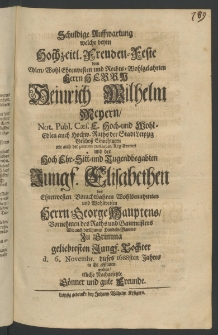 Schuldige Auffwartung
welche beym
Hochzeitl. Freuden-Feste
dem
Edlen, Wohl-Ehrenvesten und Rechts-Wohlgelahrten
Herrn HERRN
Heinrich Wilhelm
Meyern,
Not. Publ. Cæs. E. Hoch- und Wohl-
Edlen auch Hochw. Raths der Stadt Leipzig
und der
Hoch Ehr- Sitt- und Tugendbegabten
Jungf. Elisabethen
des
Ehrenvesten Vorachtbahren Wohlbenahmten
und Wohlweisen
Herrn George
Vornehmen des Raths und Baumeisters
Zu Grimma
geliebtesten Jungf. Tochter
d. 6. Novembr. dieses 1688sten Jahres
etliche Nachgesetzte
Gönner und gute Freunde.
Leipzig, gedruckt bey Johann Wilhelm Krügern.